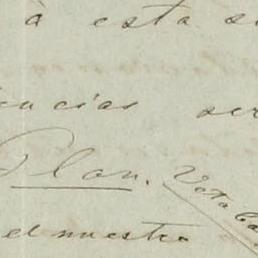 à esta
encias ser
Plan.
el nuestro